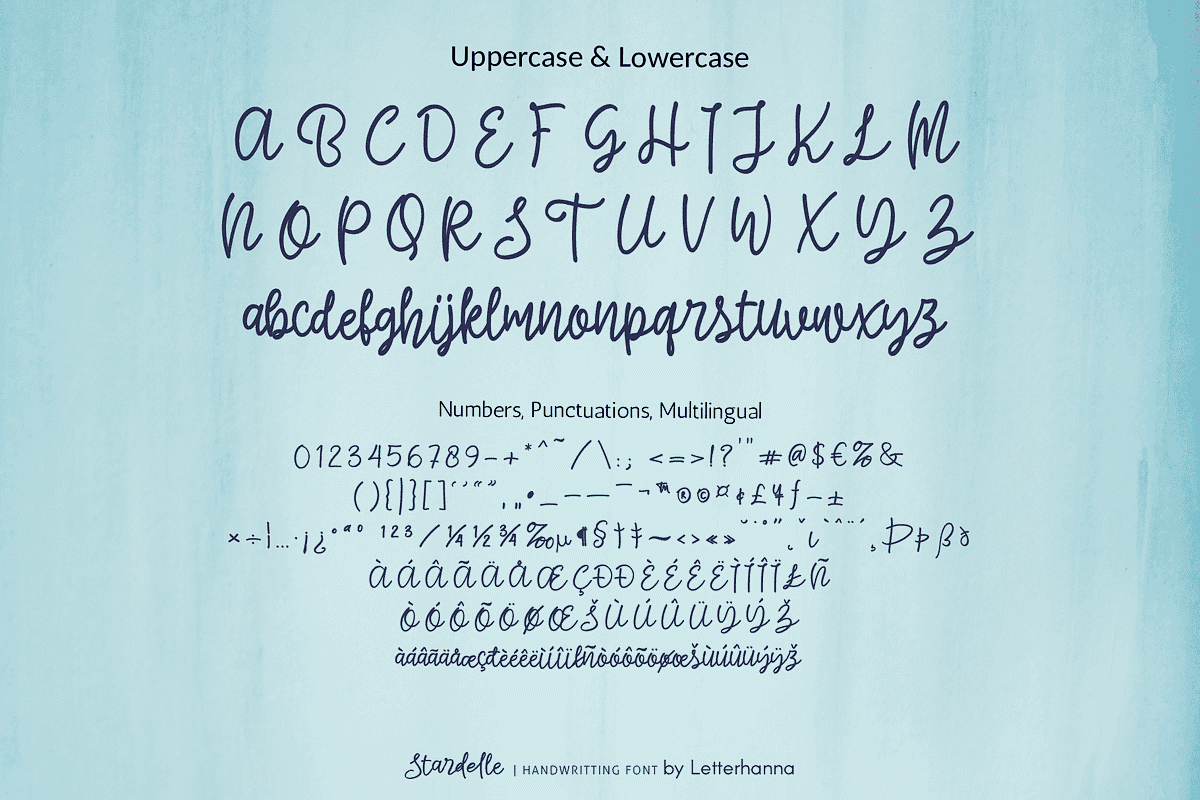 Uppercase & Lowercase
A B C D E F G H I J K L M
N O P Q R S T U V W X Y Z
abcdefghijklmnonpqrstuvwxyz
Numbers, Punctuations, Multilingual
0123456789-+*^~/\:;<=>!?'"#@$€%&
(){|}[]‘’“”‚„•_–—¯¬™®©¤¢£¥ƒ-±
×÷¦…·¡¿°ªº¹²³⁄¼½¾‰µ¶§†‡~‹›«»˘˙˚˝˛ˇı`ˆ¨´¸Þþßð
ÀÁÂÃÄÅÆÇĐÐÈÉÊËÌÍÎÏŁÑ
ÒÓÔÕÖØŒŠÙÚÛÜŸÝŽ
àáâãäåæçđèéêëìíîïłñòóôõöøœšùúûüýÿž
Stardelle | HANDWRITTING FONT by Letterhanna